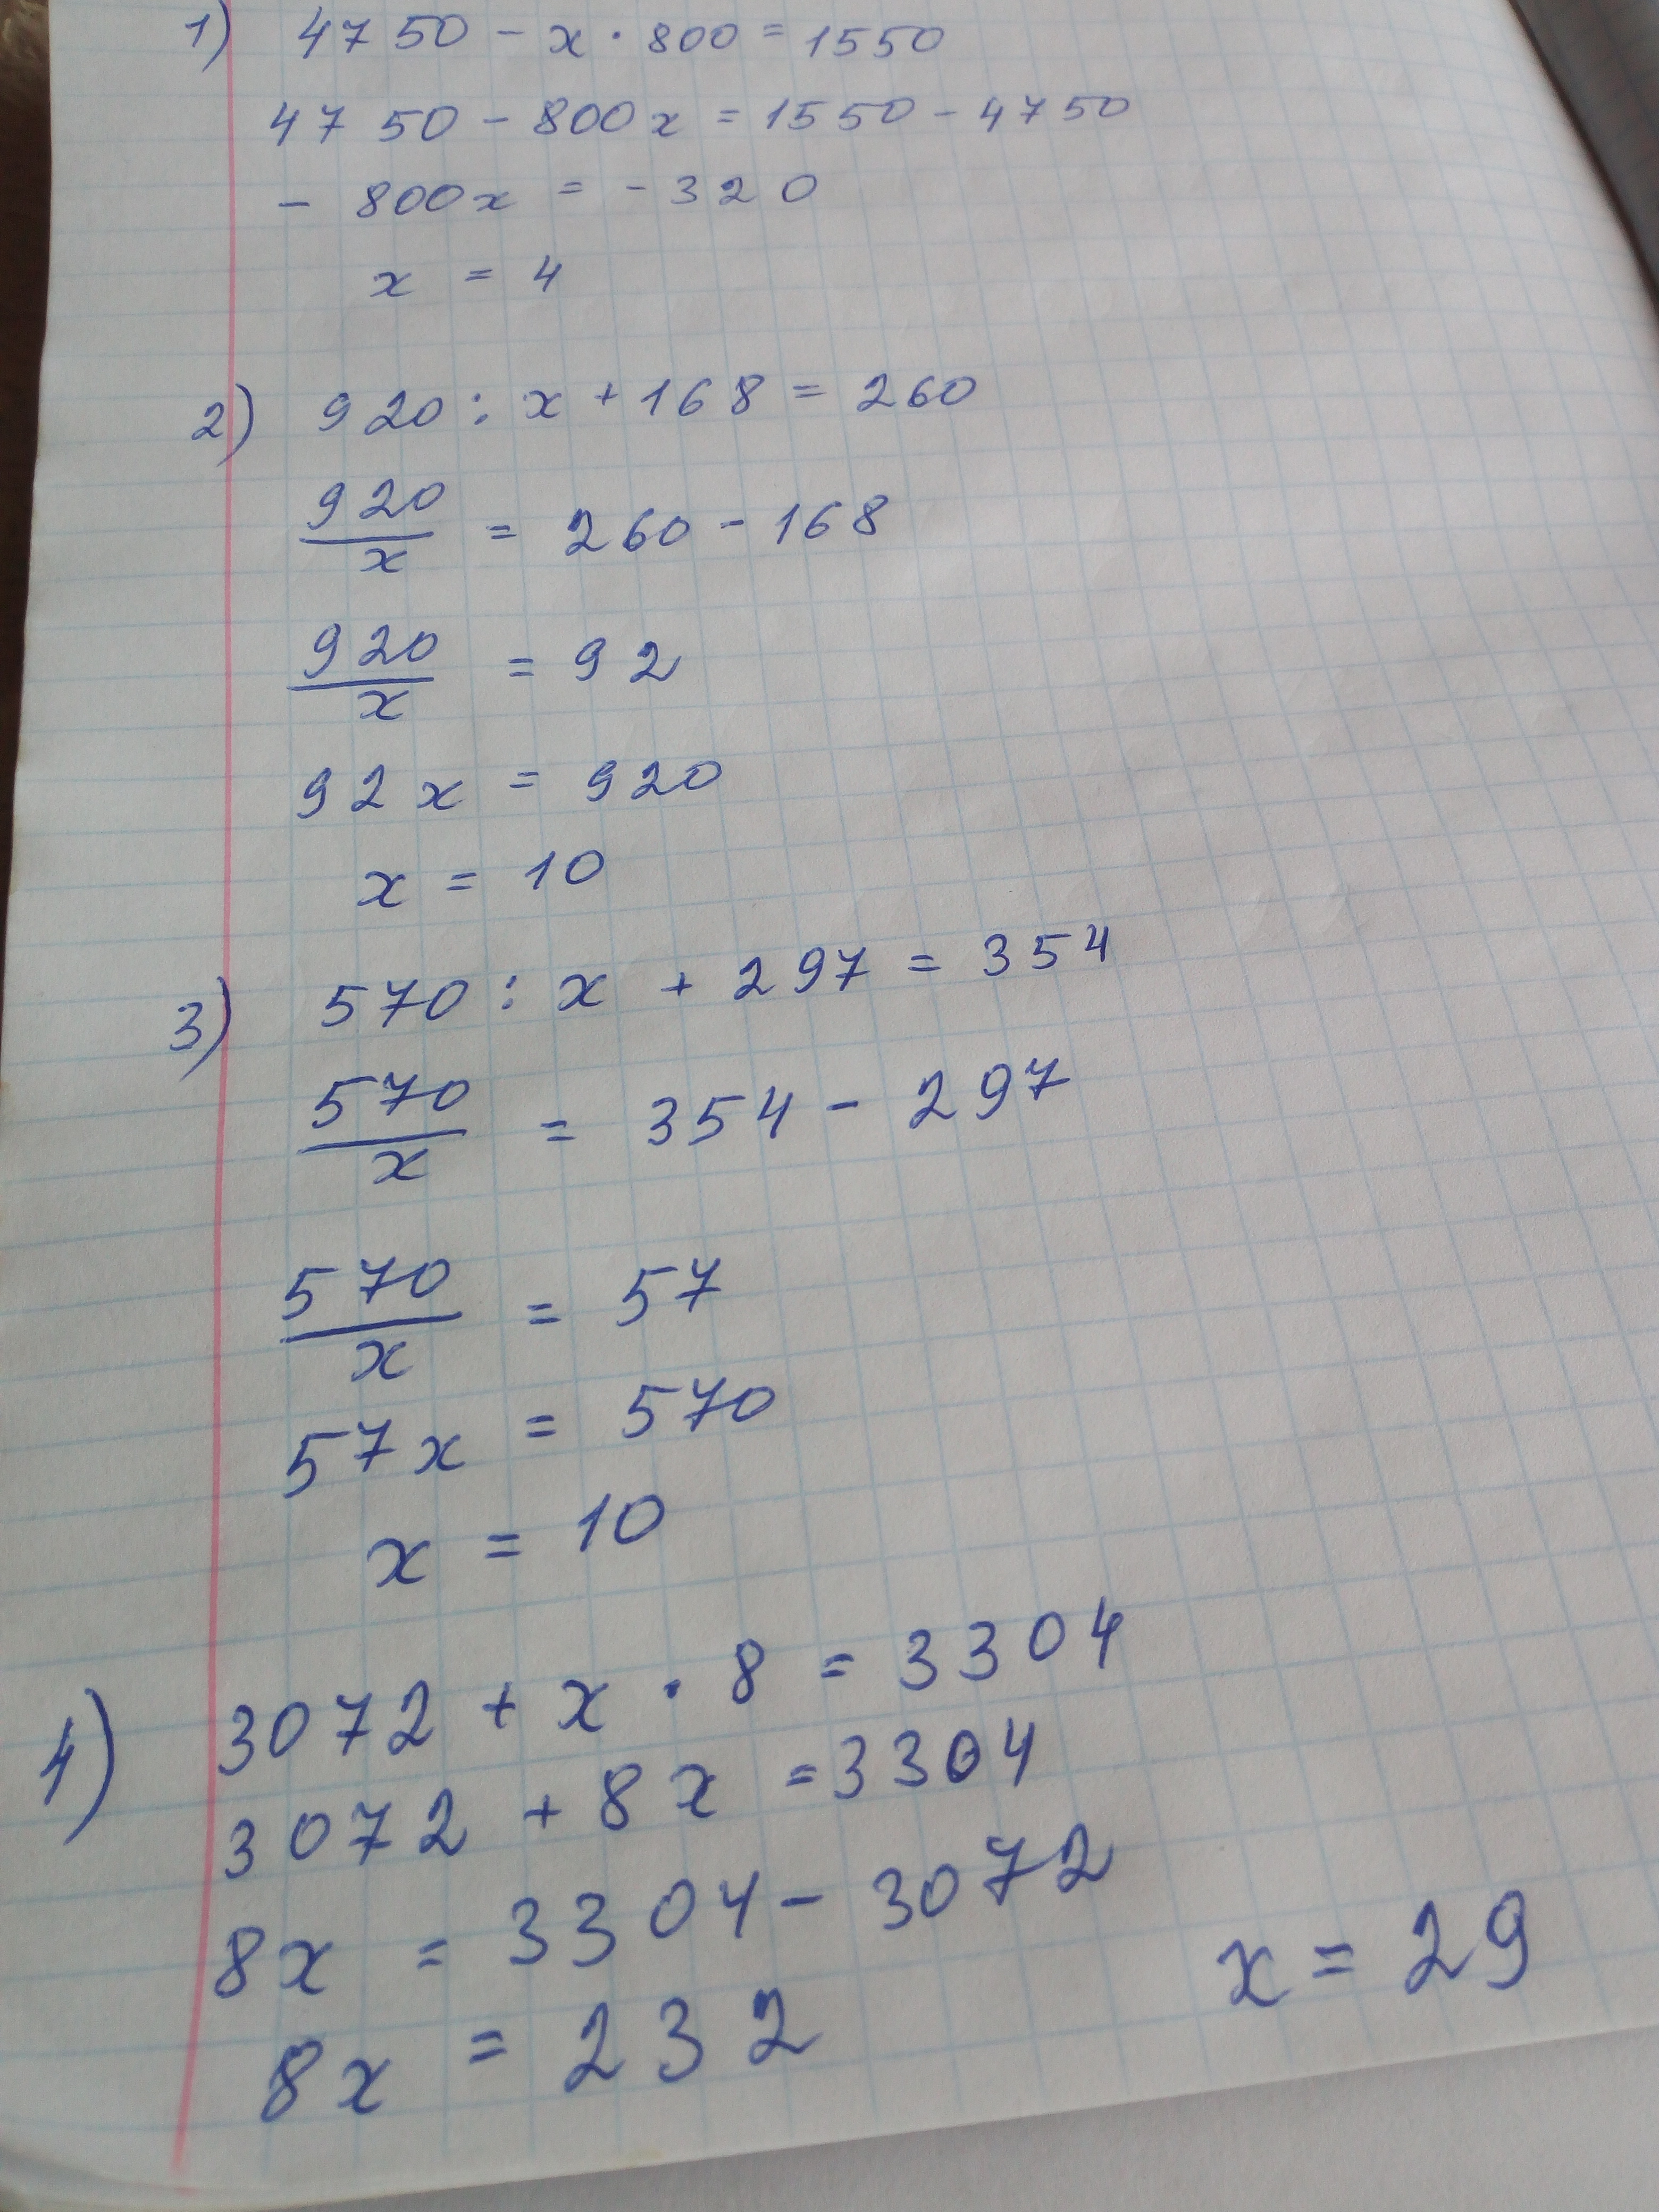 1) 4750 - x · 800 = 1550
4750 - 800x = 1550 - 4750
- 800x = - 320
x = 4
2) 920 : x + 168 = 260
920/x = 260 - 168
920/x = 92
92x = 920
x = 10
3) 570 : x + 297 = 354
570/x = 354 - 297
570/x = 57
57x = 570
x = 10
4) 3072 + x · 8 = 3304
3072 + 8x = 3304
8x = 3304 - 3072
8x = 232
x = 29